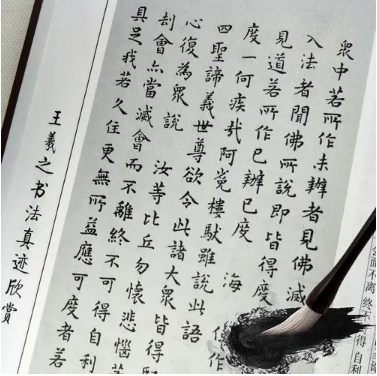 眾中若所作未辦者見佛滅
入法者聞佛所說即皆得度
見道若所作已辦已度 海
度一何疾哉阿㝹樓馱雖說此語
四聖諦義世尊欲令此諸大眾皆得
心復為眾說 汝等比丘勿懷悲惱若
刦會亦當滅會而不離終不可得自利
具足我若久住更無所益應可度者若
王羲之书法真迹欣赏